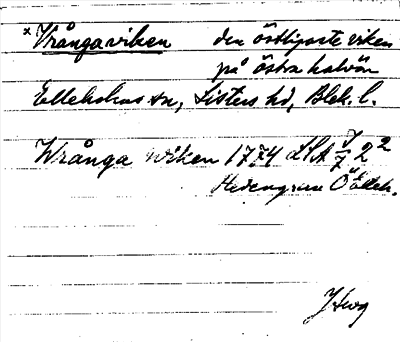 x Vrångaviken den östligaste viken
på östra halvön
Elleholms sn, Listers hd, Blek. l.
Wrånga wiken 1774 LSA 7 2²
Hedengren Ö
JHwg